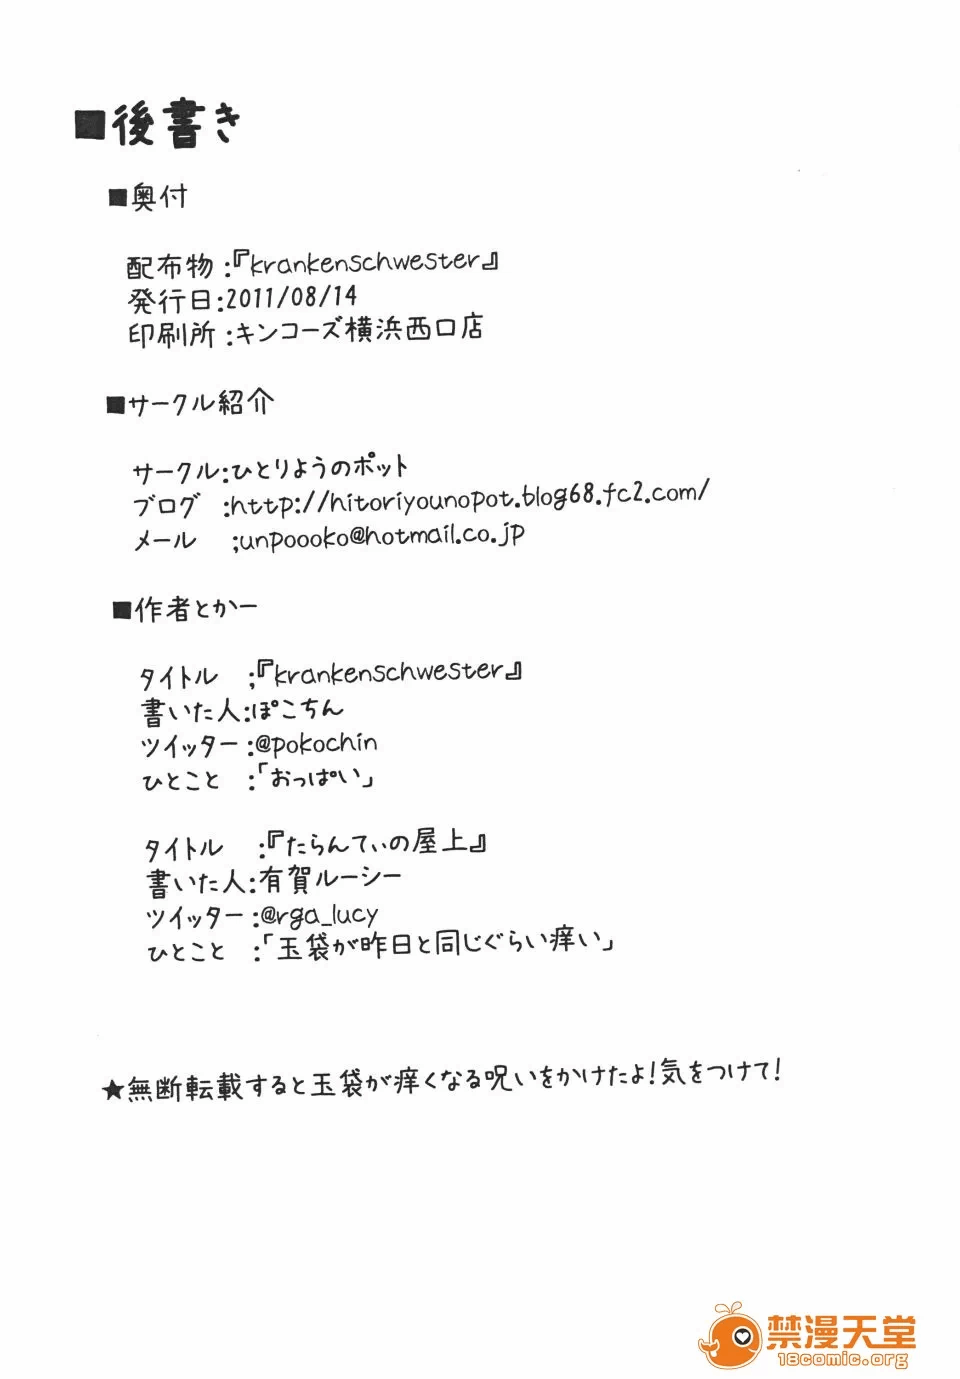 ■後書き
■奥付
配布物:『krankenschwester』
発行日:2011/08/14
印刷所:キンコーズ横浜西口店
■サークル紹介
サークル:ひとりようのポット
ブログ:http://hitoriyounopot.blog68.fc2.com/
メール;unpoooko@hotmail.co.jp
■作者とかー
タイトル;『krankenschwester』
書いた人:ぽこちん
ツイッター:@pokochin
ひとこと:「おっぱい」
タイトル:『たらんてぃの屋上』
書いた人:有賀ルーシー
ツイッター:@rga_lucy
ひとこと:「玉袋が昨日と同じぐらい痒い」
★無断転載すると玉袋が痒くなる呪いをかけたよ!気をつけて!
禁漫天堂
18comic.org